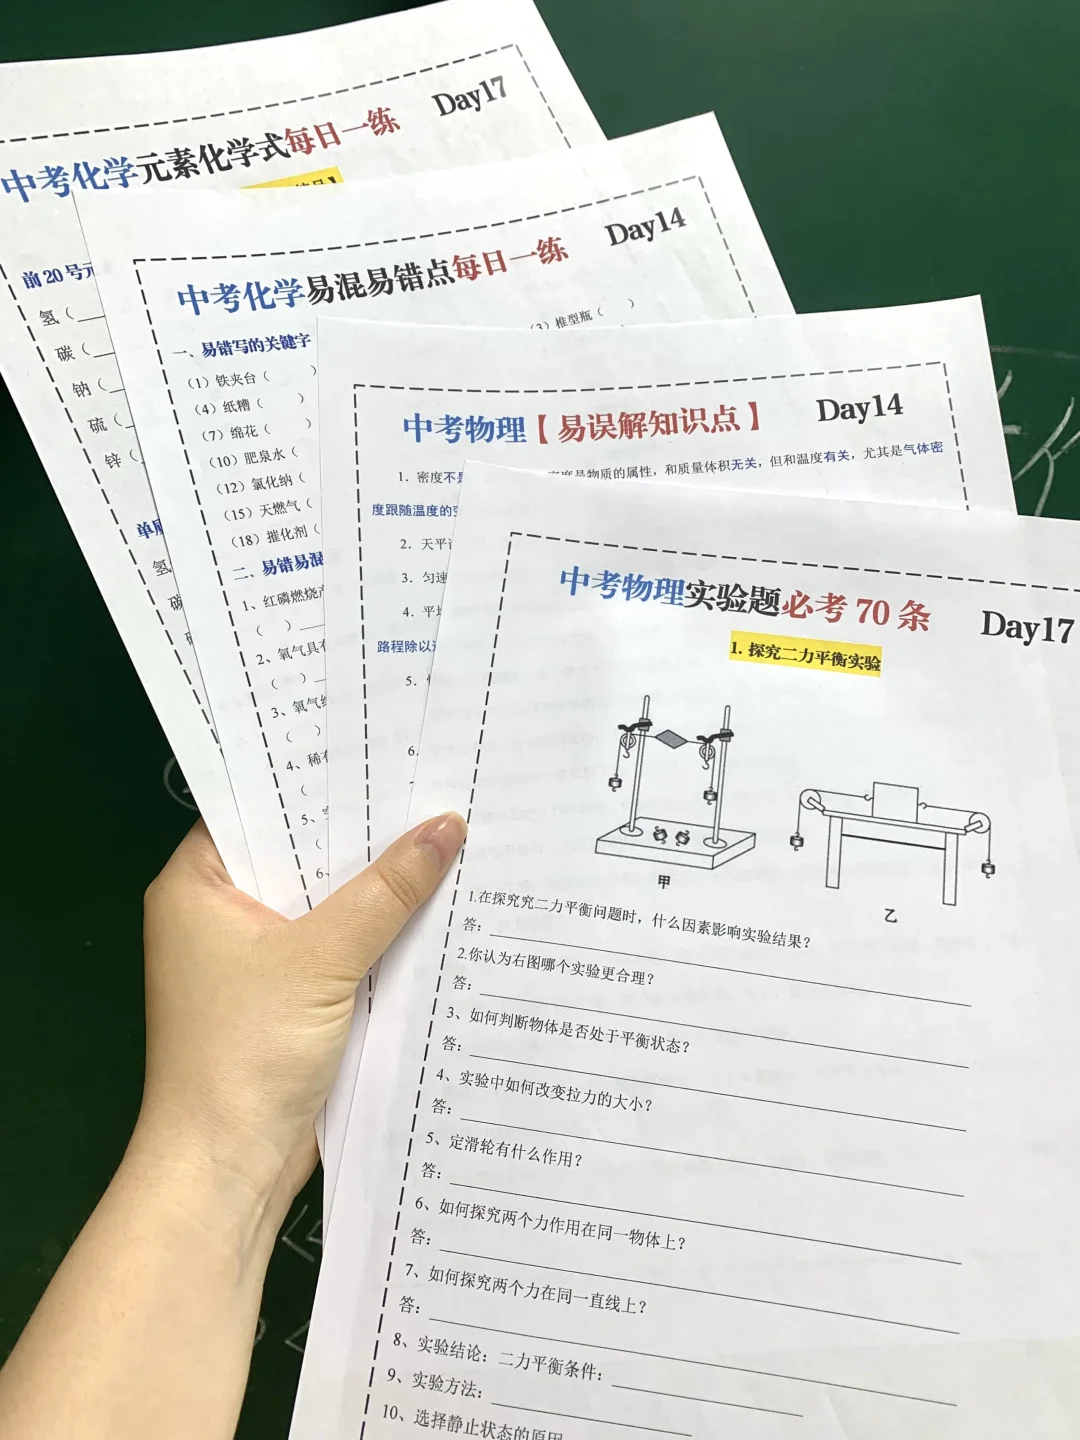 中考化学元素化学式每日一练 Day17
前20号元
氢（
碳（
钠（
硫（
锌（
氢
中考化学易混易错点每日一练 Day14
一、易错写的关键字
（1）铁夹台（ ）
（3）椎型瓶（ ）
（4）纸糟（ ）
（7）绵花（ ）
（10）肥泉水（
（12）氯化纳（
（15）天燃气（
（18）摧化剂（
二、易错易混
1、红磷燃烧产
（ ）
2、氧气具有
（ ）
3、氧气
（ ）
4、稀有
（
5、空
（
6、
中考物理【易误解知识点】 Day14
1．密度不是
密度是物质的属性，和质量体积无关，但和温度有关，尤其是气体密
度跟随温度的变
2．天平
3．匀速
4．平均
路程除以
5．
6．
中考物理实验题必考70条 Day17
1. 探究二力平衡实验
甲
乙
1.在探究究二力平衡问题时，什么因素影响实验结果？
答：
2.你认为右图哪个实验更合理？
答：
3、如何判断物体是否处于平衡状态？
答：
4、实验中如何改变拉力的大小？
答：
5、定滑轮有什么作用？
答：
6、如何探究两个力作用在同一物体上？
答：
7、如何探究两个力在同一直线上？
答：
8、实验结论：二力平衡条件：
9、实验方法：
10、选择静止状态的原因